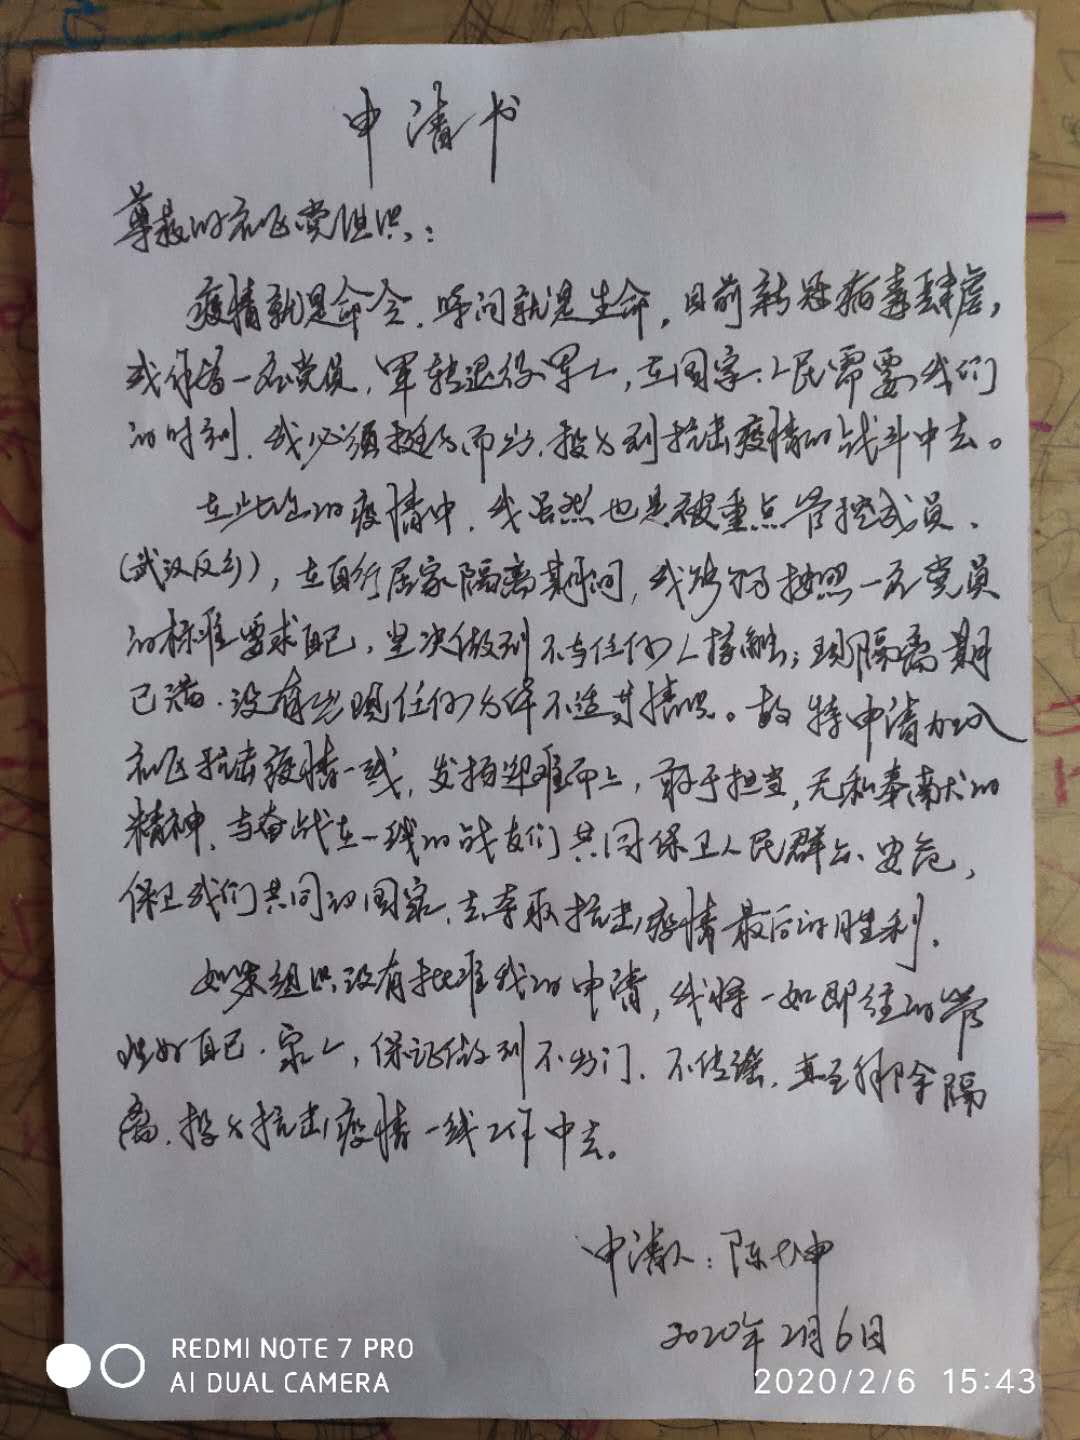 申请书
尊敬的社区党组织：
疫情就是命令，时间就是生命，目前新冠病毒肆虐，
我作为一名党员，军转退役军人，在国家、人民需要我们
的时刻，我必须挺身而出，投身到抗击疫情的战斗中去。
在此次的疫情中，我虽然也是被重点管控成员、
（武汉反乡），在自行居家隔离期间，我能够按照一名党员
的标准要求自己，坚决做到不与任何人接触；现隔离期
已满，没有出现任何身体不适等情况。故特申请加入
社区抗击疫情一线，发扬迎难而上，敢于担当，无私奉献的
精神，与奋战在一线的战友们共同保卫人民群众安危，
保卫我们共同的国家，去夺取抗击疫情最后的胜利.
如果组织没有批准我的申请，我将一如即往的管
理好自己、家人，保证做到不出门、不传谣，直至解除隔
离，投身抗击疫情一线工作中去。
申请人：陈 坤
2020年2月6日
REDMI NOTE 7 PRO
AI DUAL CAMERA
2020/2/6 15:43